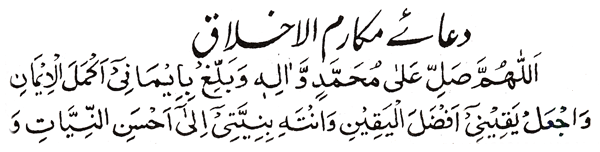 دعائے مکارم الاخلاق
اَللّٰهُمَّ صَلِّ عَلٰى مُحَمَّدٍ وَّاٰلِهٖ وَبَلِّغْ بِاِيْمَانِىْٓ اَكْمَلَ الْاِيْمَانِ
وَاجْعَلْ يَقِيْنِىْٓ اَفْضَلَ الْيَقِيْنِ وَانْتَهِ بِنِيَّتِىْٓ اِلٰٓى اَحْسَنِ النِّيَّاتِ وَ